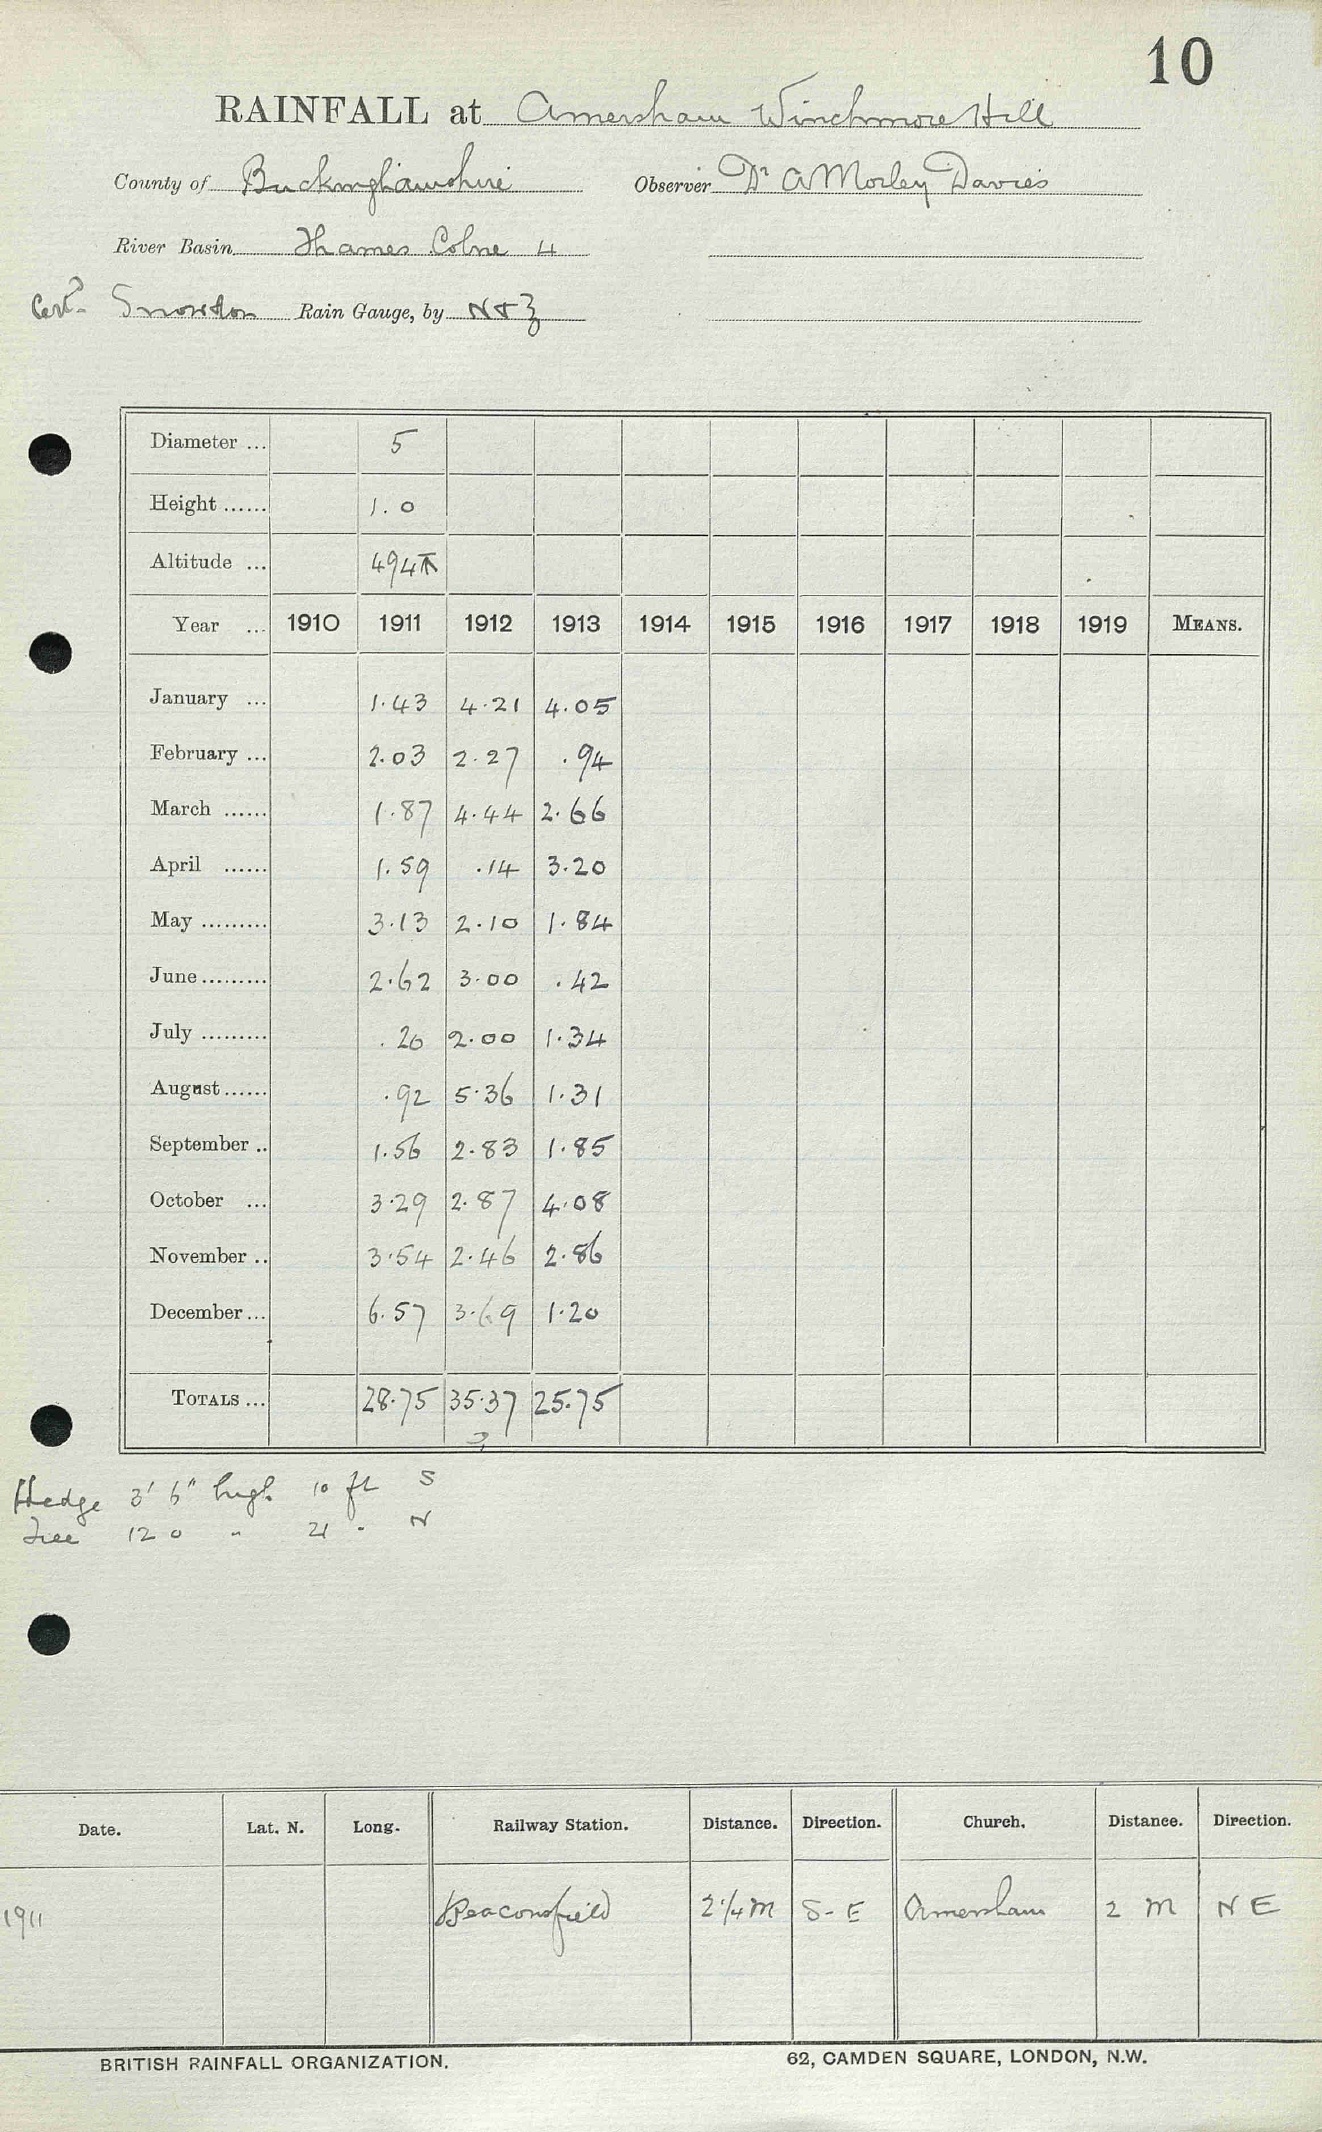 10
RAINFALL at Amersham Winchmore Hill
County of Buckinghamshire Observer Dr A Morley Davies
River Basin Thames Colne 4
Certd Snowdon Rain Gauge, by N & Z
Diameter ... 5
Height ...... 1.0
Altitude ... 494
Year ... 1910 1911 1912 1913 1914 1915 1916 1917 1918 1919 MEANS.
January ... 1.43 4.21 4.05
February ... 2.03 2.27 .94
March ...... 1.87 4.44 2.66
April ...... 1.59 .14 3.20
May ......... 3.13 2.10 1.84
June ......... 2.62 3.00 .42
July ......... .20 2.00 1.34
August ...... .92 5.36 1.31
September .. 1.56 2.83 1.85
October ... 3.29 2.87 4.08
November .. 3.54 2.46 2.86
December ... 6.57 3.69 1.20
TOTALS ... 28.75 35.37 25.75
Hedge 3' 6" high 10 ft S
Tree 12 0 " 21 " N
Date. Lat. N. Long. Railway Station. Distance. Direction. Church. Distance. Direction.
1911 Beaconsfield 2 1/4 M S-E Amersham 2 M N E
BRITISH RAINFALL ORGANIZATION. 62, CAMDEN SQUARE, LONDON, N.W.